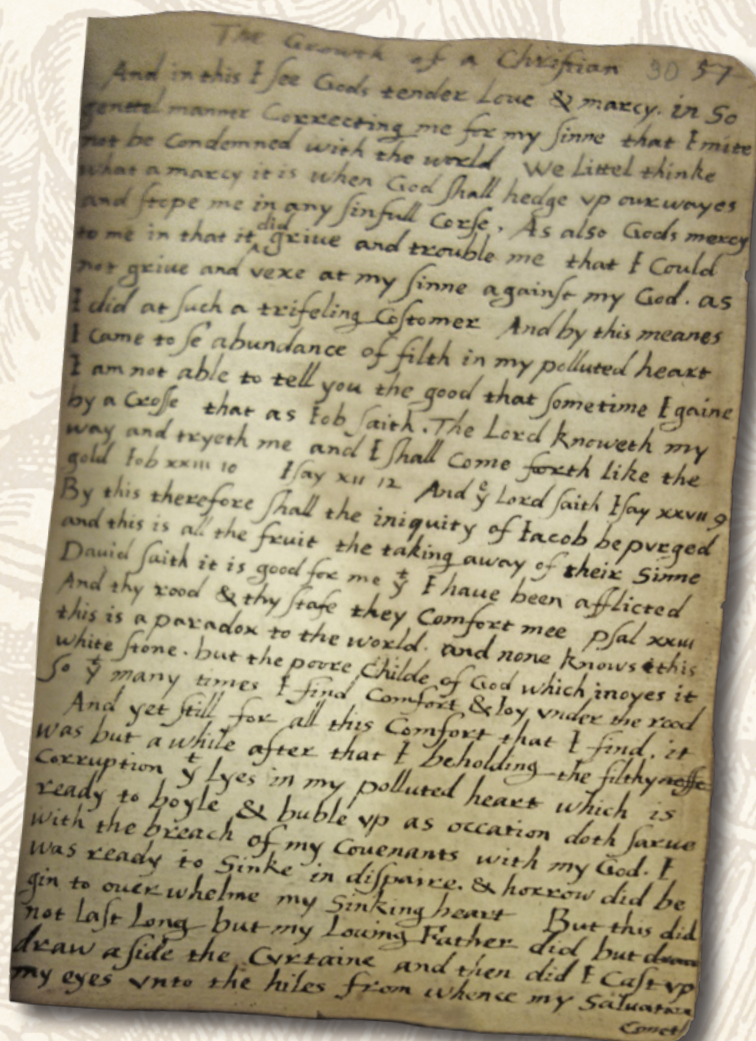 The Growth of a Christian 30 57
And in this I see Gods tender Love & marcy. in So
genttel manner Correcting me for my sinne that I mite
not be Condemned with the world We Littel thinke
what a marcy it is when God shall hedge vp our wayes
and stope me in any sinfull Corse, As also Gods mercy
to me in that it did griue and trouble me that I Could
not griue and vexe at my sinne against my God. as
I did at such a trifeling Costomer And by this meanes
I came to se abundance of filth in my polluted heart
I am not able to tell you the good that sometime I gaine
by a Crosse that as Iob saith. The Lord knoweth my
way and tryeth me and I shall Come forth like the
gold Iob xxiii 10 Isay xii 12 And yᵉ Lord saith Isay xxvii 9
By this therefore shall the iniquity of Iacob be pvrged
and this is all the fruit the taking away of their Sinne
Dauid saith it is good for me yᵗ I have been afflicted
And thy rood & thy stafe they Comfort mee psal xxiii
this is a paradox to the world. and none knows this
white stone. but the poore Childe of God which inoyes it
So yᵗ many times I find Comfort & Ioy vnder the rood
And yet still for all this Comfort that I find. it
was but a while after that I beholding the filthy
Corruption yᵗ Lyes in my polluted heart which is
ready to boyle & buble vp as occation doth sarue
with the breach of my Couenants with my God. I
was ready to Sinke in dispaire. & horrow did be
gin to ouer whelme my Sinking heart But this did
not last Long but my Louing Father did but
draw aside the Cvrtaine and then did I Cast vp
my eyes vnto the hiles from whence my Saluation
Cometh